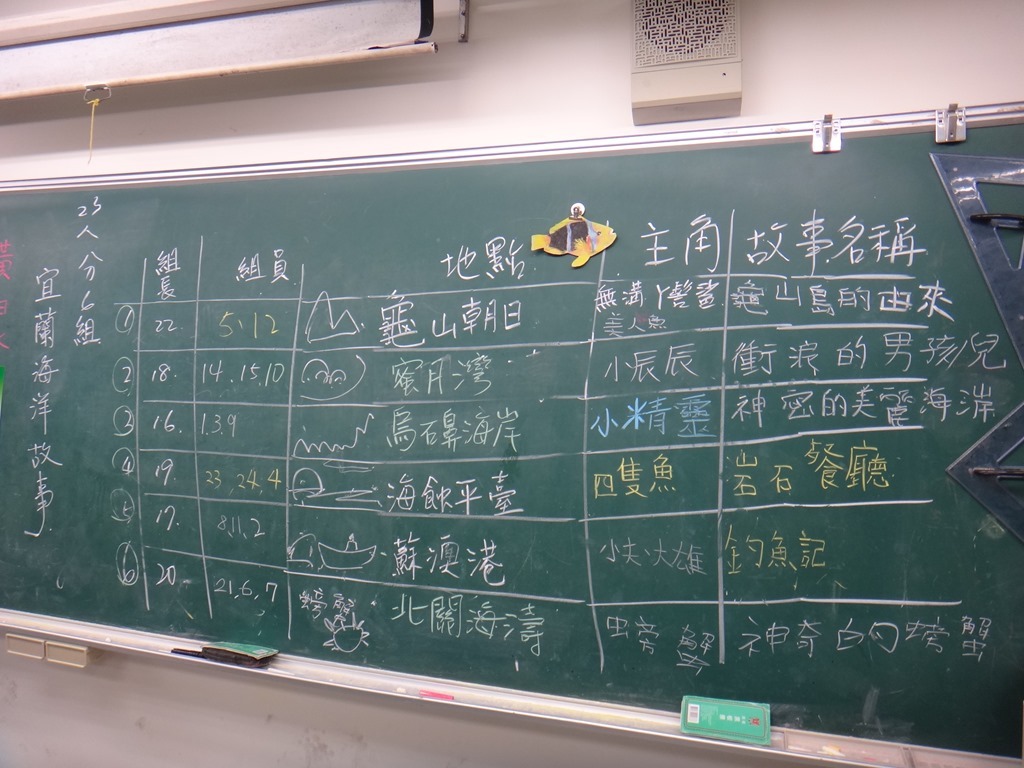 23人分6組
宜蘭海洋故事
組長 組員 地點 主角 故事名稱
① 22. 5.12 龜山朝日 無溝丫彎鯊 龜山島的由來
美人魚
② 18. 14.15.10 蜜月灣 小辰辰 衝浪的男孩兒
③ 16. 1.3.9 烏碞海岸 小精靈 神密的美麗海岸
④ 19. 23.24.4 海蝕平臺 四隻魚 岩石餐廳
⑤ 17. 8.11.2 蘇澳港 小夫.大雄 釣魚記
⑥ 20 21.6.7 螃蟹 北關海濤 螃蟹 神奇的螃蟹